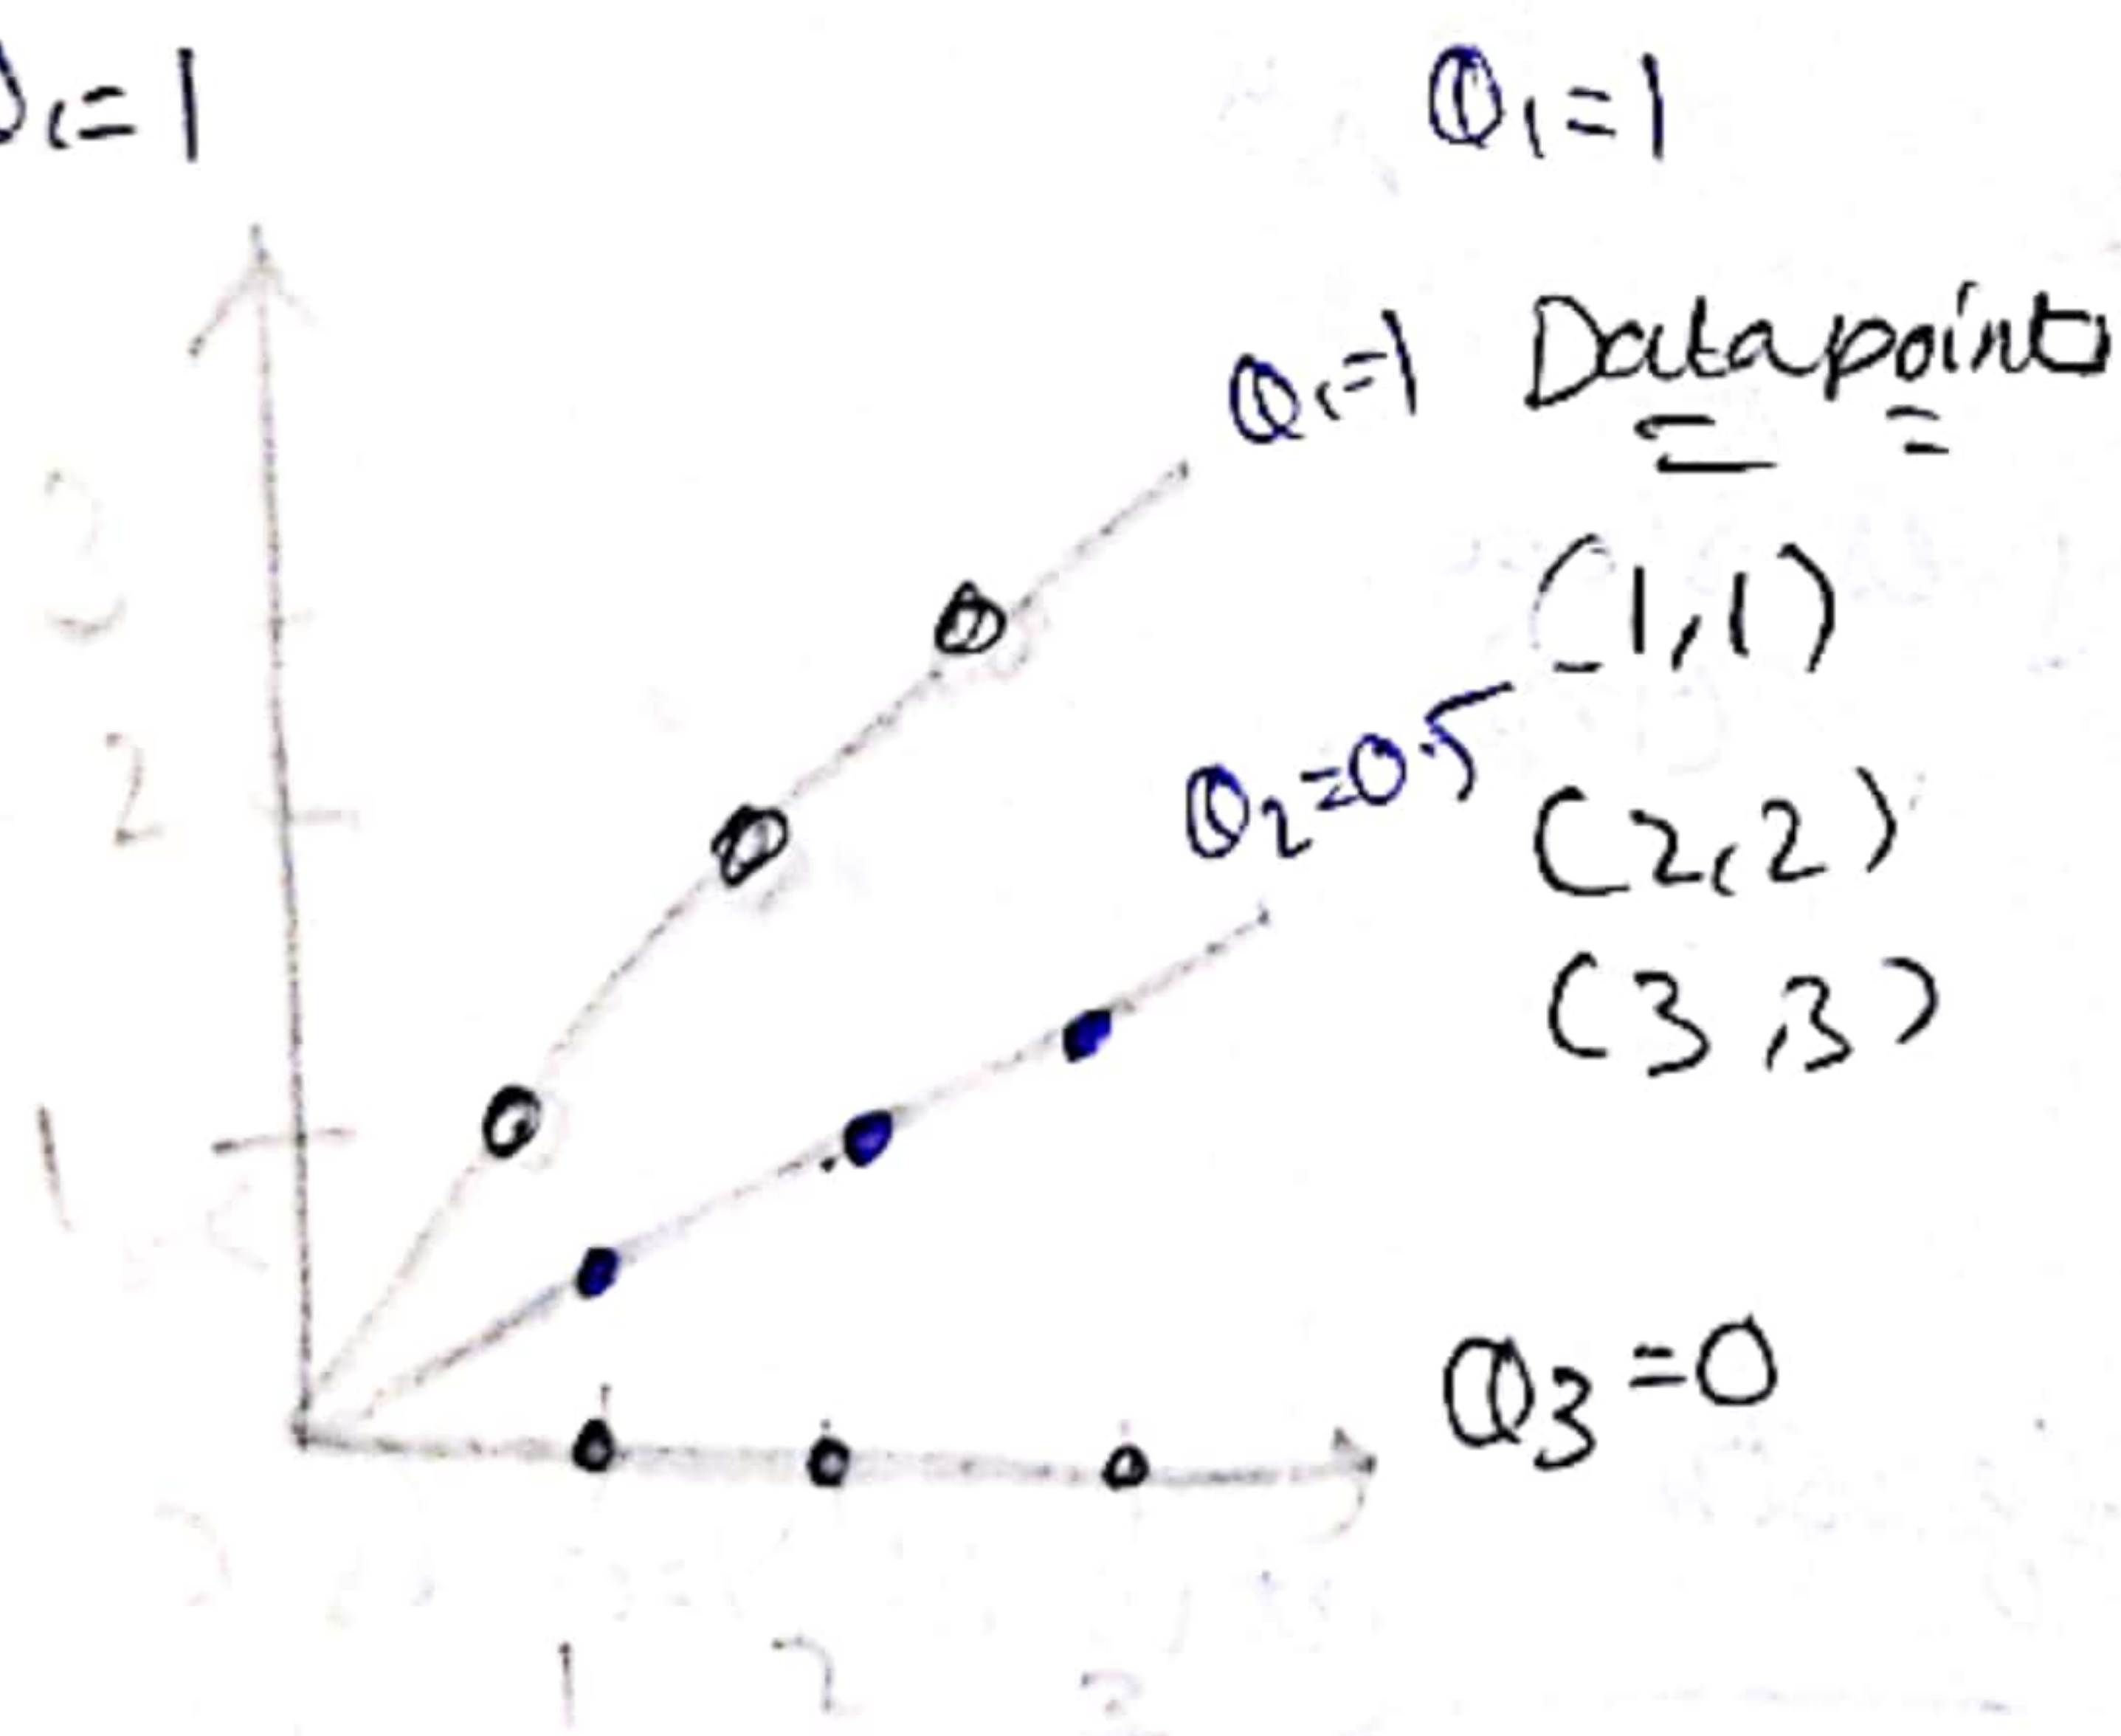 θ₁=1
θ₁=1
θ₁=1
Datapoints
(1,1)
θ₂=0.5
(2,2)
(3,3)
θ₃=0
3
2
1
1 2 3